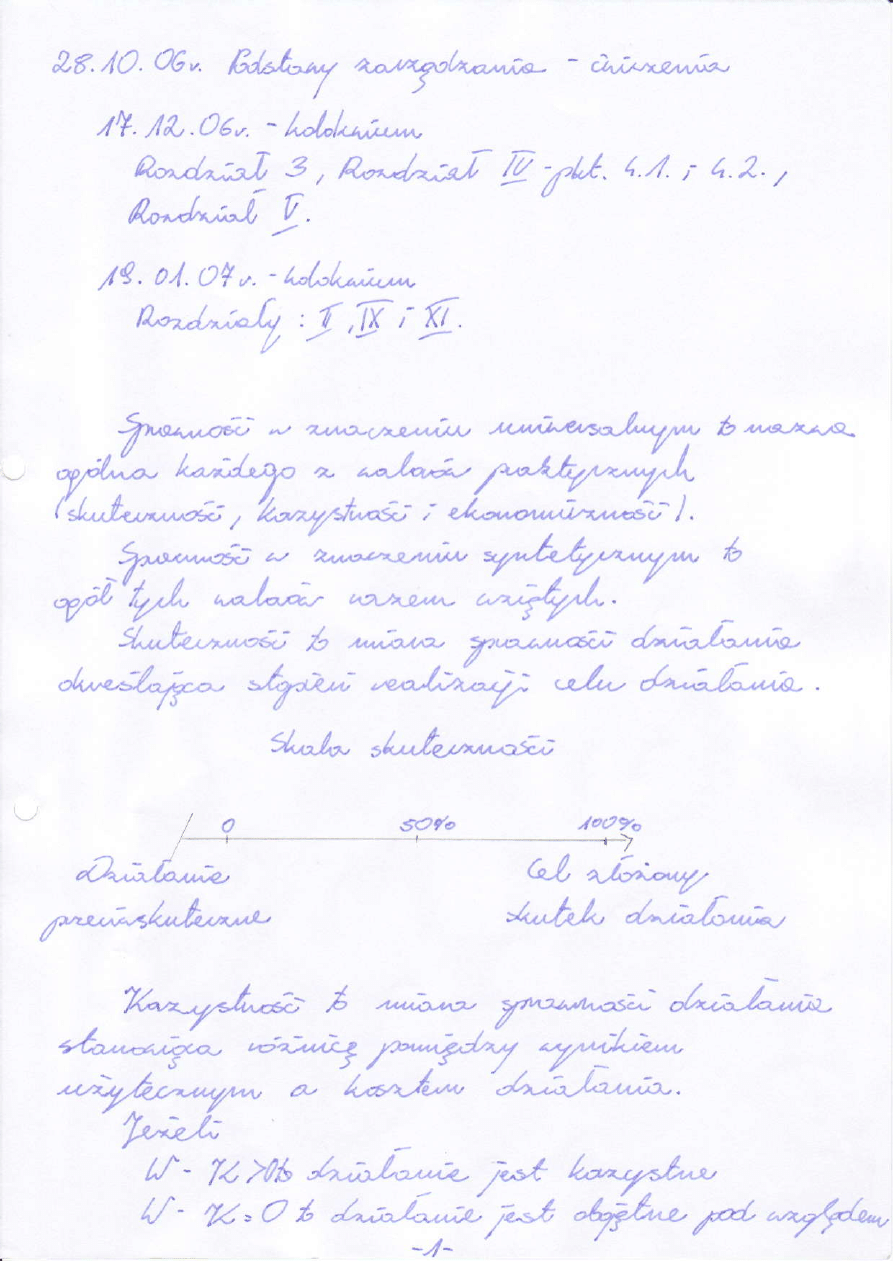 28.10.06r. Podstawy zarządzania - ćwiczenia
17.12.06r. - kolokwium
Rozdział 3, Rozdział IV - pkt. 4.1. i 4.2.,
Rozdział V.
19.01.07r. - kolokwium
Rozdziały : II, IX i XI.
Sprawność w znaczeniu uniwersalnym to nazwa
ogólna każdego z walorów praktycznych
(skuteczność, korzystność i ekonomiczność).
Sprawność w znaczeniu syntetycznym to
ogół tych walorów razem wziętych.
Skuteczność to miara sprawności działania
określająca stopień realizacji celu działania.
Skala skuteczności
0 50% 100%
Działanie Cel złożony
przeciwskuteczne skutek działania
Korzystność to miara sprawności działania
stanowiąca różnicę pomiędzy wynikiem
użytecznym a kosztem działania.
Jeżeli
W - K >0 to działanie jest korzystne
W - K = 0 to działanie jest obojętne pod względem
-1-